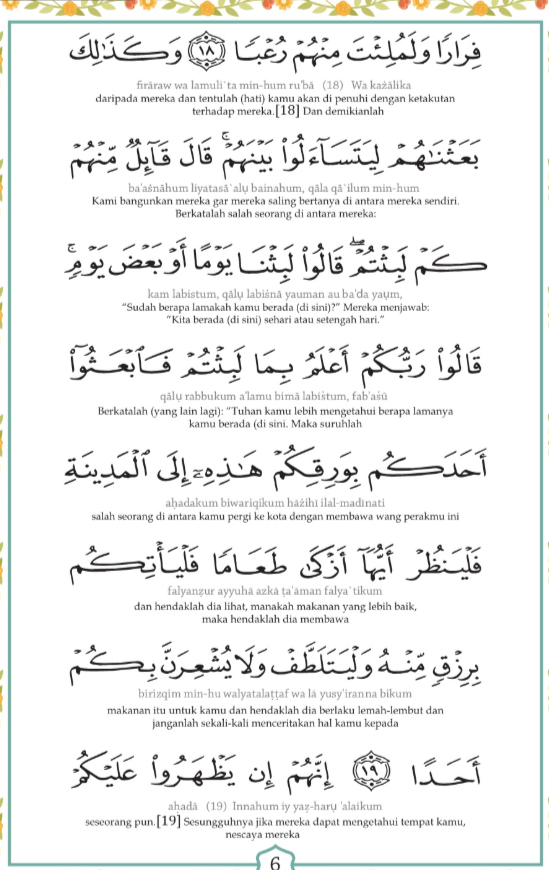 فِرَارًا وَلَمُلِئْتَ مِنْهُمْ رُعْبًا ١٨ وَكَذَٰلِكَ
firāraw wa lamuli`ta min-hum ru'bā (18) Wa każālika
daripada mereka dan tentulah (hati) kamu akan di penuhi dengan ketakutan
terhadap mereka.[18] Dan demikianlah
بَعَثْنَٰهُمْ لِيَتَسَآءَلُوا۟ بَيْنَهُمْ ۚ قَالَ قَآئِلٌ مِّنْهُمْ
ba'aśnāhum liyatasā`alụ bainahum, qāla qā`ilum min-hum
Kami bangunkan mereka gar mereka saling bertanya di antara mereka sendiri.
Berkatalah salah seorang di antara mereka:
كَمْ لَبِثْتُمْ ۖ قَالُوا۟ لَبِثْنَا يَوْمًا أَوْ بَعْضَ يَوْمٍ ۚ
kam labistum, qālụ labiśnā yauman au ba'ḍa yaụm,
"Sudah berapa lamakah kamu berada (di sini)?" Mereka menjawab:
"Kita berada (di sini) sehari atau setengah hari."
قَالُوا۟ رَبُّكُمْ أَعْلَمُ بِمَا لَبِثْتُمْ فَٱبْعَثُوٓا۟
qālụ rabbukum a'lamu bimā labiśtum, fab'aśū
Berkatalah (yang lain lagi): "Tuhan kamu lebih mengetahui berapa lamanya
kamu berada (di sini. Maka suruhlah
أَحَدَكُم بِوَرِقِكُمْ هَٰذِهِۦٓ إِلَى ٱلْمَدِينَةِ
aḥadakum biwariqikum hāżihī ilal-madīnati
salah seorang di antara kamu pergi ke kota dengan membawa wang perakmu ini
فَلْيَنظُرْ أَيُّهَآ أَزْكَىٰ طَعَامًا فَلْيَأْتِكُم
falyanẓur ayyuhā azkā ṭa'āman falya`tikum
dan hendaklah dia lihat, manakah makanan yang lebih baik,
maka hendaklah dia membawa
بِرِزْقٍ مِّنْهُ وَلْيَتَلَطَّفْ وَلَا يُشْعِرَنَّ بِكُمْ
birizqim min-hu walyatalaṭṭaf wa lā yusy'iranna bikum
makanan itu untuk kamu dan hendaklah dia berlaku lemah-lembut dan
janganlah sekali-kali menceritakan hal kamu kepada
أَحَدًا ١٩ إِنَّهُمْ إِن يَظْهَرُوا۟ عَلَيْكُمْ
aḥadā (19) Innahum iy yaẓ-harụ 'alaikum
seseorang pun.[19] Sesungguhnya jika mereka dapat mengetahui tempat kamu,
nescaya mereka
6